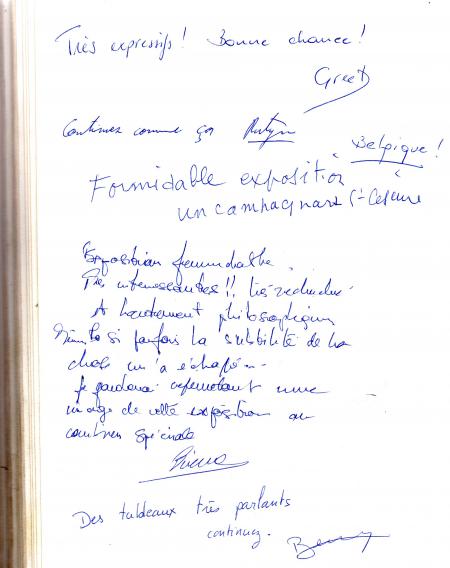 Très expressifs! Bonne chance!
Greet
Continuez comme ça
Belgique!
Formidable exposition
un campagnard St-Césaire
Exposition formidable
Très interessantes!! très
et hautement philosophiques
si parfois la subtilité de la
chose m'a échapé...
Je garderai une
image de cette exposition au
combien spéciale
Des tableaux très parlants
continuez.